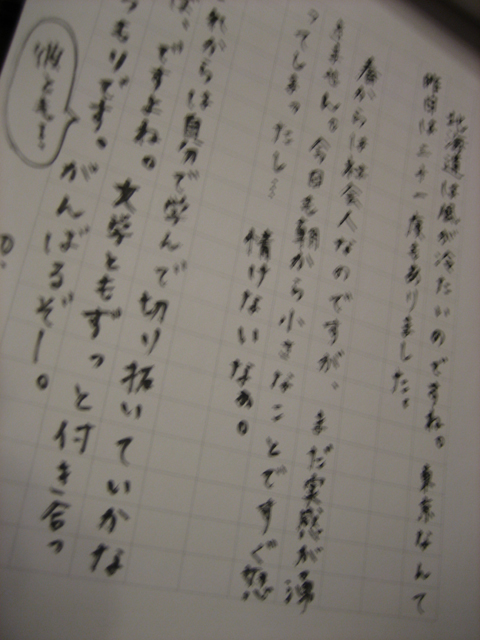 北海道は風が冷たいのですね。東京なんて
昨日は二十一度もありました。
春からは社会人なのですが、まだ実感が湧
きません。今日も朝から小さなことですぐ怒
ってしまったし… 情けないなぁ。
れからは自分で学んで切り拓いていかな
ば、ですよね。文学ともずっと付き合っ
つもりです。がんばるぞー。
彼とも!